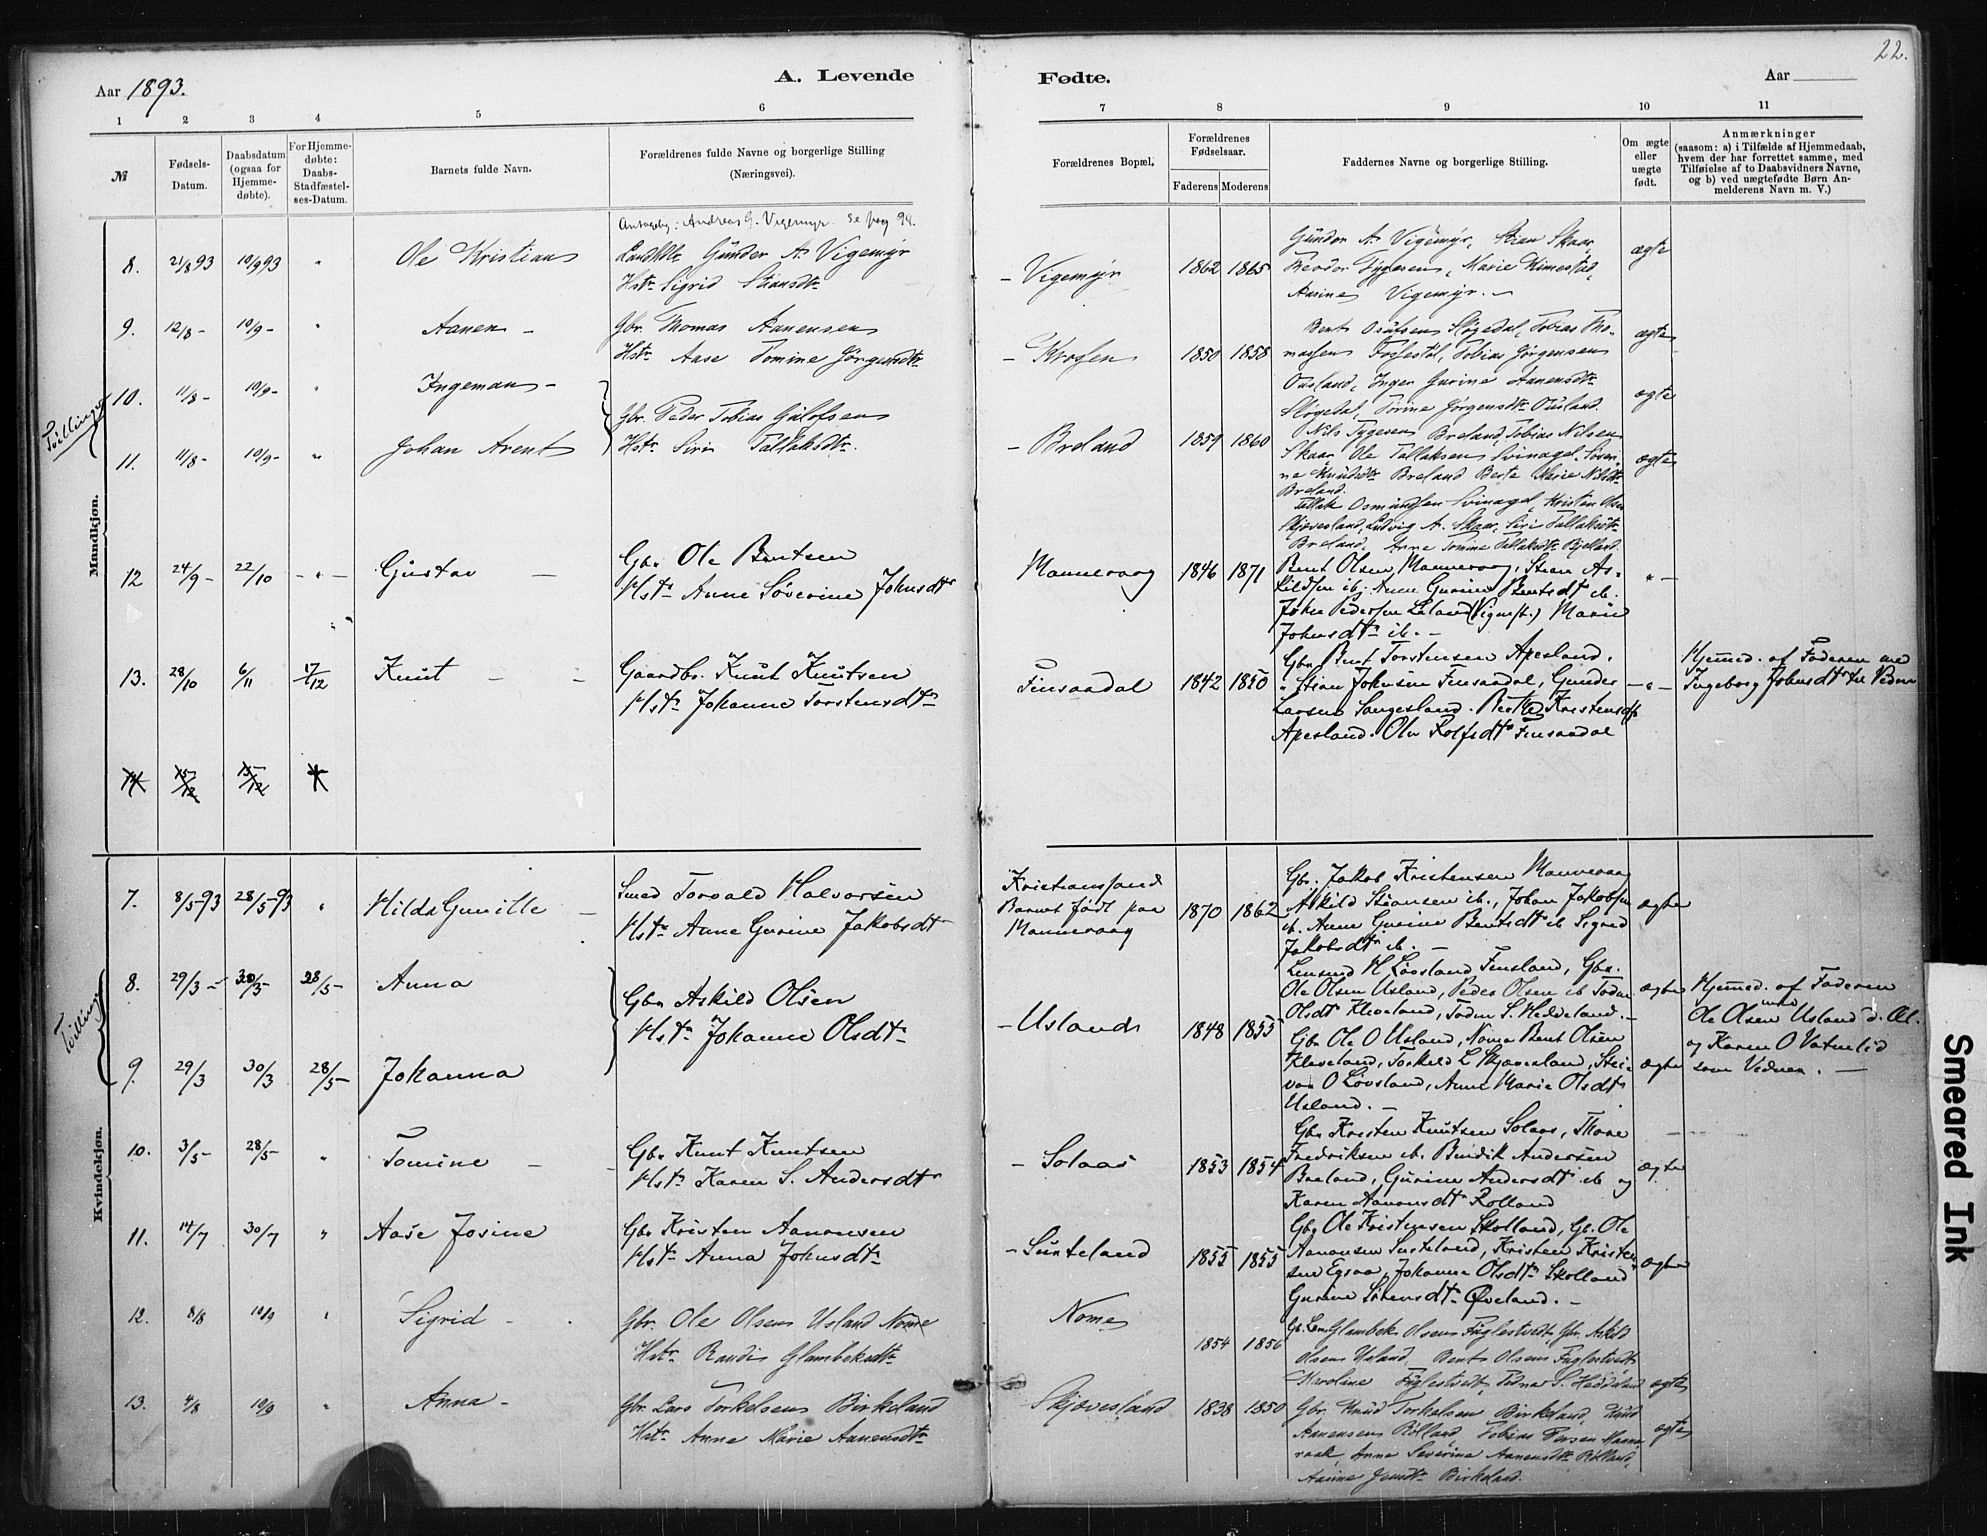 22.
Aar 1893.
A. Levende
Fødte.
Aar
1 2 3 4 5 6 7 8 9 10 11
№
Fødsels-
Datum.
Daabsdatum
(ogsaa for
Hjemme-
døbte).
For Hjemme-
døbte:
Daabs-
Stadfæstel-
ses-Datum.
Barnets fulde Navn.
Forældrenes fulde Navne og borgerlige Stilling
(Næringsvei).
Forældrenes Bopæl.
Forældrenes
Fødselsaar.
Faderens Moderens
Faddernes Navne og borgerlige Stilling.
Om ægte
eller
uægte
født.
Anmærkninger
(saasom: a) i Tilfælde af Hjemmedaab,
hvem der har forrettet samme, med
Tilføielse af to Daabsvidners Navne,
og b) ved uægtefødte Børn An-
melderens Navn m. V.)
Mandkjøn.
Andreas G. Vigemyr. se pag 98.
8. 21/8 93 10/9 93 " Ole Kristian
Gunder A. Vigemyr
Hstr Sigrid Stiansdtr
- Vigemyr 1862 1865
Gunder A. Vigemyr, Stian Skaar,
Teodor Tygesen, Marie Kimestad,
Aasine Vigemyr. -
ægte
9. 12/8 - 10/9 - " Aanen -
Gbr. Thomas Aanensen
Hstr Aase Tomine Jørgensdtr
- Krossen 1850 1858
Bent Osufsen Støgedal, Tobias Tho-
massen Fuglestøl, Tobias Jørgensen
Ousland, Inger Gurine Aanensdtr
Støgedal, Tomine Jørgensdtr Ousland.
ægte
Tvillinger
10. 11/8 - 10/9 - " Ingeman -
11. 11/8 - 10/9 - " Johan Arent
Gbr. Peder Tobias Gulofsen
Hstr Siri Tallaksdtr.
- Breland 1859 1860
Nils Tygesen Breland, Tobias Nilsen
Skaar, Ole Tallaksen Svinagel, Søveri-
ne Knudsdtr Breland Berte Marie Nilsdtr
Breland.
Tallak Osmundsen Svinagel, Kristen Olsen
Skjævesland, Ludvig A. Skaar, Siri Tallaksdtr
Breland, Anne Tomine Tallaksdtr Bjelland.
ægte
ægte
12 24/9 - 22/10 - " - Gustav -
Gbr Ole Bentsen
Hstr Anne Søverine Johnsdtr
Mannevaag 1846 1871
Bent Olsen Mannevaag, Stian As-
kildsen ib, Anne Gurine Bentsdtr ib.
John Pedersen Leland (Vigmst.) Marie
Johnsdtr ib. -
" -
13. 28/10 6/11 17/12 Knut - -
Gaardbr. Knut Knutsen
Hstr Johanne Torstensdtr
Finsaadal 1842 1850
Gbr Bent Torstensen Apesland.
" Stian Johnsen Finsaadal, Gunder
Larsen Sangesland. Berthe Kristensdtr
Apesland. Olev Rolfsdtr Finsaadal
- " -
Hjemmed. af Faderen med
Ingeborg Johnsdtr til Vidne
14 15/12 15/12
Kvindekjøn.
7. 8/5-93 28/5-93 " Hilda Gunille -
Smed Torvald Halvorsen
Hstr Anne Gurine Jakobsdtr
Kristianssand
Barnet født paa
Mannevaag
1870 1862
Gbr. Jakob Kristensen Mannevaag
Askild Stiansen ib., Johan Jakobsen
ib. Anne Gurine Bentsdtr ib Sigrid
Jakobsdtr ib. -
ægte
Tvillinger
8. 29/3 - 30/3 28/5- Anna
9. 29/3 30/3 28/5- Johanna
Gbr Askild Olsen
Hstr Johanne Olsdtr
- Usland 1848 1855
Lensmd H Løvsland Finsland, Gbr.
Ole Olsen Usland, Peder Olsen ib Todne
Olsdtr Kleveland, Todne S. Heddeland. -
Gbr Ole O Usland, Nome Bent Olsen
Kleveland, Torkild L Skjævesland, Stei-
nar O Løvsland, Anne Marie Olsdtr
Usland. -
ægte
ægte
Hjemmed. af Faderen
med
Ole Olsen Usland d. Æl.
og Karen O Vatnelid
som Vidner. -
10. 3/5- 28/5- " Tomine -
Gbr Knut Knutsen
Hstr Karen S. Andersdtr
- Solaas 1853 1854
Gbr Kristen Knutsen Solaas, Thore
Fredriksen ib. Bendik Andersen
Breland, Gurine Andersdtr ib og
Karen Aanonsdtr Rolland
ægte
11. 14/7 30/7 " Aase Josine
Gbr Kristen Aanonsen
Hstr Anna Johnsdtr
- Sunteland 1855 1855
Gbr Ole Kristensen Skolland, Gb. Ole
Aanonsen Sunteland, Kristen Kristen-
sen Egsaa, Johanne Olsdtr Skolland
Gurine Sørensdtr Øveland. -
ægte
12. 8/8 10/9 " Sigrid -
Gbr. Ole Olsen Usland Nome
Hstr Randi Glambeksdtr
Nome 1854 1856
Glambek Olsen Fuglestvedt Gbr. Askild
Olsen Usland, Bent Olsen Fuglestvedt
Karoline Fuglestvedt, Todne S. Heddeland
ægte
13. 4/8 10/9 " Anna -
Gbr Lars Torkelsen Birkeland
Hstr Anne Marie Aanensdtr
Skjævesland 1838 1850
Gbr. Knud Torkelsen Birkeland, Knud
Aanensen Rølland Tobias Tersen Manne-
vaak, Anne Severine Aanensdtr Rølland,
Aanine Jensdtr Birkeland.
ægte
Smeared Ink